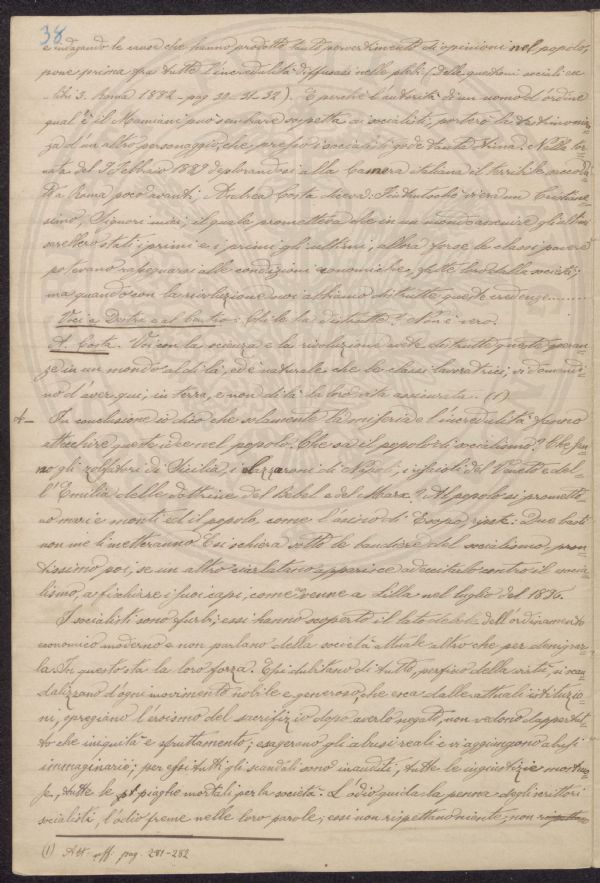 38.
e indagando le cause che hanno prodotto tanto pervertimento di opinioni nel popolo,
pone prima fra tutte l'incredulità diffusasi nelle plebi (Delle questioni sociali ec
- libri 3. Roma 1882 - pag 30-31-32). E perchè l'autorità di un uomo d'ordine
qual'è il Mamiani può sembrare sospetta ai socialisti, porterò la testimonian=
za d'un altro personaggio, che presso i socialisti gode tanta stima. Nella tor=
nata del 9 Febbraio 1889 deplorandosi alla Camera italiana il terribile
a Roma poco avanti, Andrea Costa diceva: Fintantochè v'era un Cristiane=
simo, Signori miei, il quale prometteva che in un mondo avvenire gli ultimi
sarebbero stati i primi e i primi gli ultimi, allora forse le classi povere
potevano rassegnarsi alle condizioni economiche, fatte loro dalla società;
ma quando con la rivoluzione voi abbiamo distrutte queste credenze........
Voci a Destra e al Centro: Chi le ha distrutte? Non è vero.
A. Costa. Voi con la scienza e la rivoluzione avete distrutto queste speran=
ze in un mondo al di là, ed è naturale che le classi lavoratrici, vi domandi=
no d'aver qui, in terra, e non di là la loro vita assicurata. (1)
In conclusione io dico che solamente la miseria e l'incredulità fanno
attecchire queste idee nel popolo. Che sa il popolo di socialismo? Che san=
no gli zolfatari di Sicilia, i lazzaroni di Napoli, i del Veneto e del=
l'Emilia delle dottrine del Bebel e del Marx? Al popolo si promett=
ono mari e monti ed il popolo, come l'asino di Esopo, ripete: Due basti
non me li metteranno. E si schiera sotto le bandiere del socialismo, pron=
tissimo poi, se un altro ciarlatano apparisce ad eccitarlo contro il socia=
lismo, a fischiare i suoi capi, come avvenne a Lilla nel luglio del 1896.
I socialisti sono furbi; essi hanno scoperto il lato debole dell'ordinamento
economico moderno e non parlano della società attuale altro che per denigrar=
la. In questo sta la loro forza. Essi dubitano di tutto, perfino della virtù, si scan=
dalizzano d'ogni movimento nobile e generoso, che esca dalle attuali istituzio=
ni, spregiano l'eroismo del sacrifizio dopo averlo negato, non vedono dappertut=
to che iniquità e sfruttamento; esagerano gli abusi reali e vi aggiungono abusi
immaginari; per essi tutti gli scandali sono inauditi, tutte le ingiustizie mostruo=
se, tutte le piaghe mortali per la società. L'odio guida la penna degli scrittori
socialisti, l'odio freme nelle loro parole; essi non rispettano niente, non
(1) Att. uff. pag. 281-282